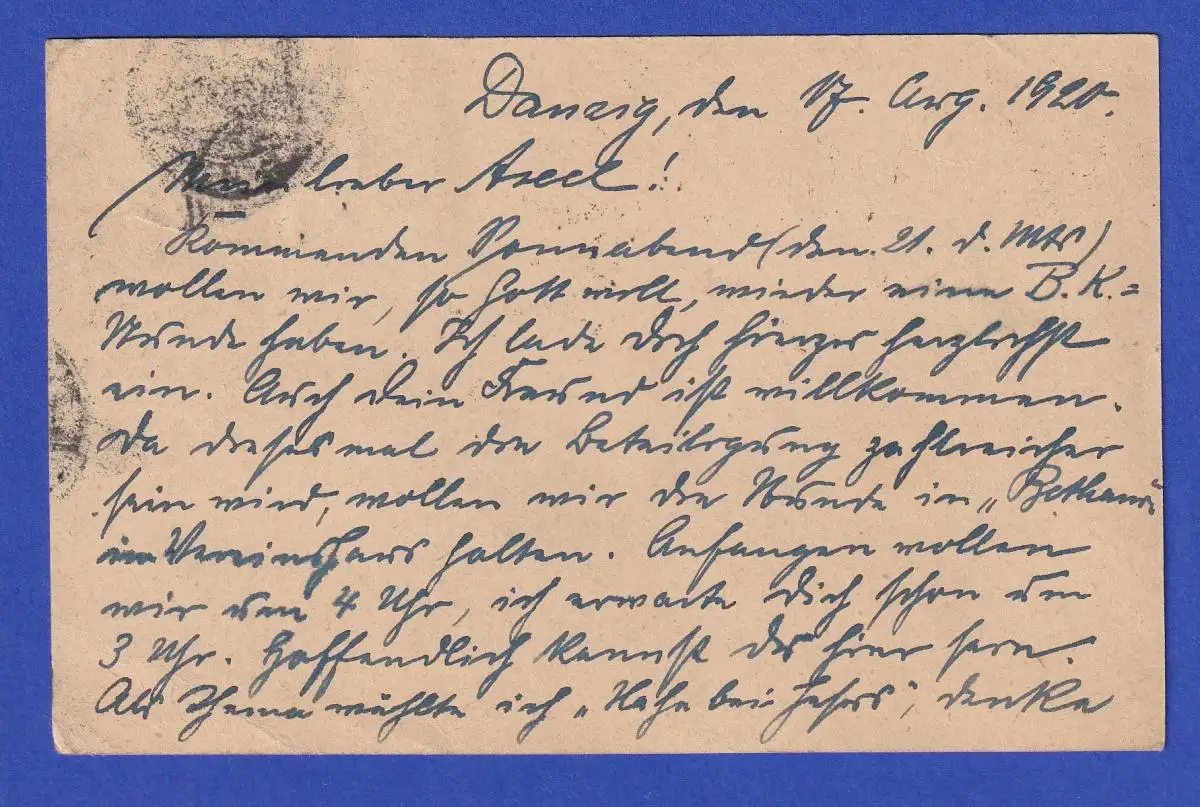 Danzig, den 17. Aug. 1920.
Mein lieber Axel!
Kommenden Sonnabend (den 21. d. Mts)
wollen wir, so Gott will, wieder eine B.K.=
Stunde haben. Ich lade Dich hierzu herzlichst
ein. Auch Dein Freund ist willkommen.
Da dieses mal die Beteiligung zahlreicher
sein wird, wollen wir die Stunde in „Bethanien
im Vereinshaus halten. Anfangen wollen
wir um 4 Uhr, ich erwarte Dich schon um
3 Uhr. Hoffendlich kannst du hier sein.
Als Thema wählte ich „Nahe bei Jesus", denke